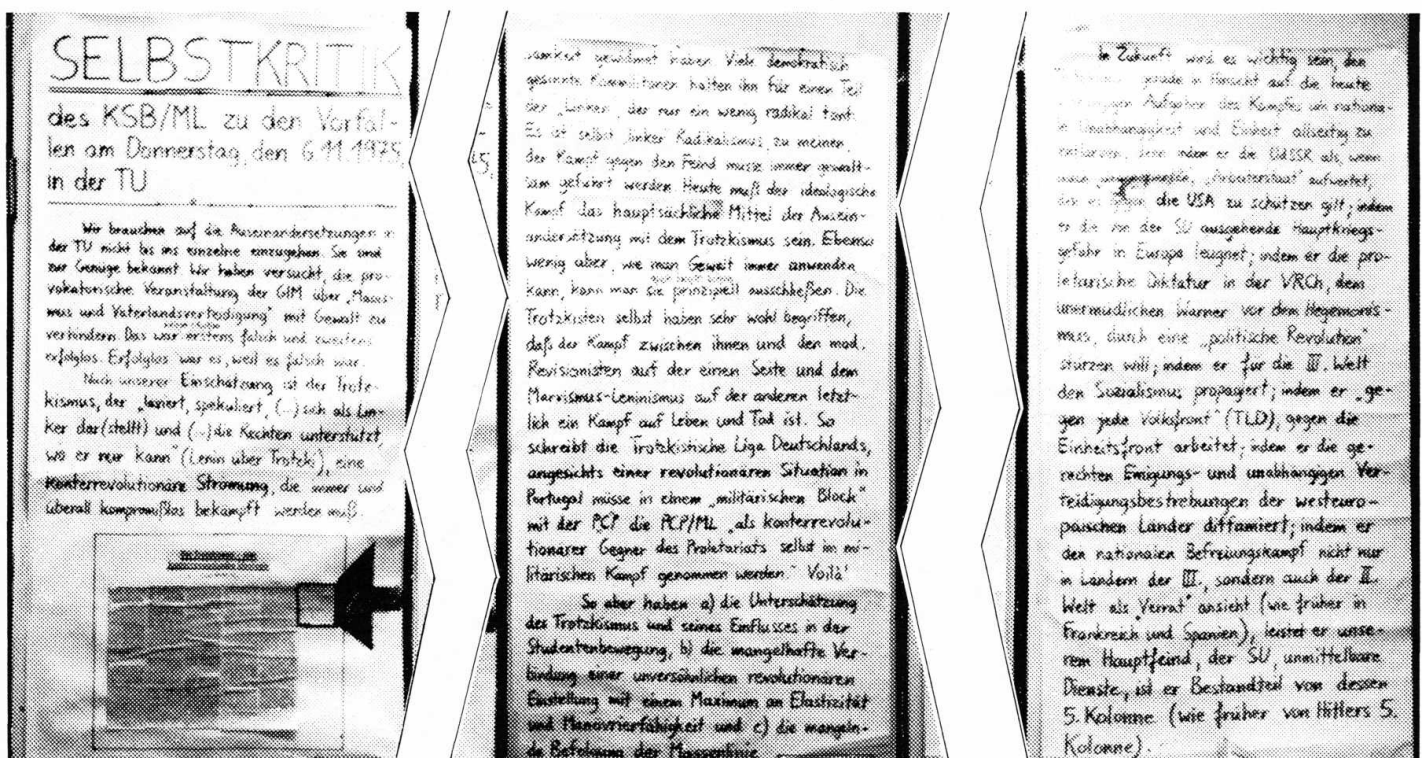 SELBSTKRITIK
des KSB/ML zu den Vorfäl-
len am Donnerstag, den 6.11.1975,
in der TU
Wir brauchen auf die Auseinandersetzungen in
der TU nicht bis ins einzelne einzugehen. Sie sind
zur Genüge bekannt. Wir haben versucht, die pro-
vokatorische Veranstaltung der GIM über „Maois-
mus und Vaterlandsverteidigung" mit Gewalt zu
verhindern. Das war erstens falsch und zweitens
erfolglos. Erfolglos war es, weil es falsch war.
Nach unserer Einschätzung ist der Trotz-
kismus, der „laviert, spekuliert, (...) sich als Lin-
ker dar(stellt) und (...) die Rechten unterstützt,
wo er nur kann" (Lenin über Trotzki), eine
konterrevolutionäre Strömung, die immer und
überall kompromißlos bekämpft werden muß.
samkeit gewidmet haben. Viele demokratisch
gesinnte Kommilitonen halten ihn für einen Teil
der „Linken", der nur ein wenig radikal tönt.
Es ist selbst „linker" Radikalismus, zu meinen,
der Kampf gegen den Feind müsse immer gewalt-
sam geführt werden. Heute muß der ideologische
Kampf das hauptsächliche Mittel der Ausein-
andersetzung mit dem Trotzkismus sein. Ebenso
wenig aber, wie man Gewalt immer anwenden
kann, kann man sie prinzipiell ausschließen. Die
Trotzkisten selbst haben sehr wohl begriffen,
daß der Kampf zwischen ihnen und den mod.
Revisionisten auf der einen Seite und dem
Marxismus-Leninismus auf der anderen letzt-
lich ein Kampf auf Leben und Tod ist. So
schreibt die Trotzkistische Liga Deutschlands,
angesichts einer revolutionären Situation in
Portugal müsse in einem „militärischen Block"
mit der PCP die PCP/ML „als konterrevolu-
tionärer Gegner des Proletariats selbst im mi-
litärischen Kampf genommen werden." Voilà!
So aber haben a) die Unterschätzung
des Trotzkismus und seines Einflusses in der
Studentenbewegung, b) die mangelhafte Ver-
bindung einer unversöhnlichen revolutionären
Einstellung mit einem Maximum an Elastizität
und Manövrierfähigkeit und c) die mangeln-
de Befolgung der Massenlinie
In Zukunft wird es wichtig sein, den
gerade in Hinsicht auf die heute
Aufgaben des Kampfes um nationa-
le Unabhängigkeit und Einheit allseitig zu
entlarven. Denn indem er die UdSSR als, wenn
„Arbeiterstaat" aufwertet,
den es gegen die USA zu schützen gilt; indem
er die von der SU ausgehende Hauptkriegs-
gefahr in Europa leugnet; indem er die pro-
letarische Diktatur in der VRCh, dem
unermüdlichen Warner vor dem Hegemonis-
mus, durch eine „politische Revolution"
stürzen will; indem er für die III. Welt
den Sozialismus propagiert; indem er „ge-
gen jede Volksfront" (TLD), gegen die
Einheitsfront arbeitet; indem er die ge-
rechten Einigungs- und unabhängigen Ver-
teidigungsbestrebungen der westeuro-
päischen Länder diffamiert; indem er
den nationalen Befreiungskampf nicht nur
in Ländern der III., sondern auch der II.
Welt als „Verrat" ansieht (wie früher in
Frankreich und Spanien), leistet er unse-
rem Hauptfeind, der SU, unmittelbare
Dienste, ist er Bestandteil von dessen
5. Kolonne (wie früher von Hitlers 5.
Kolonne).